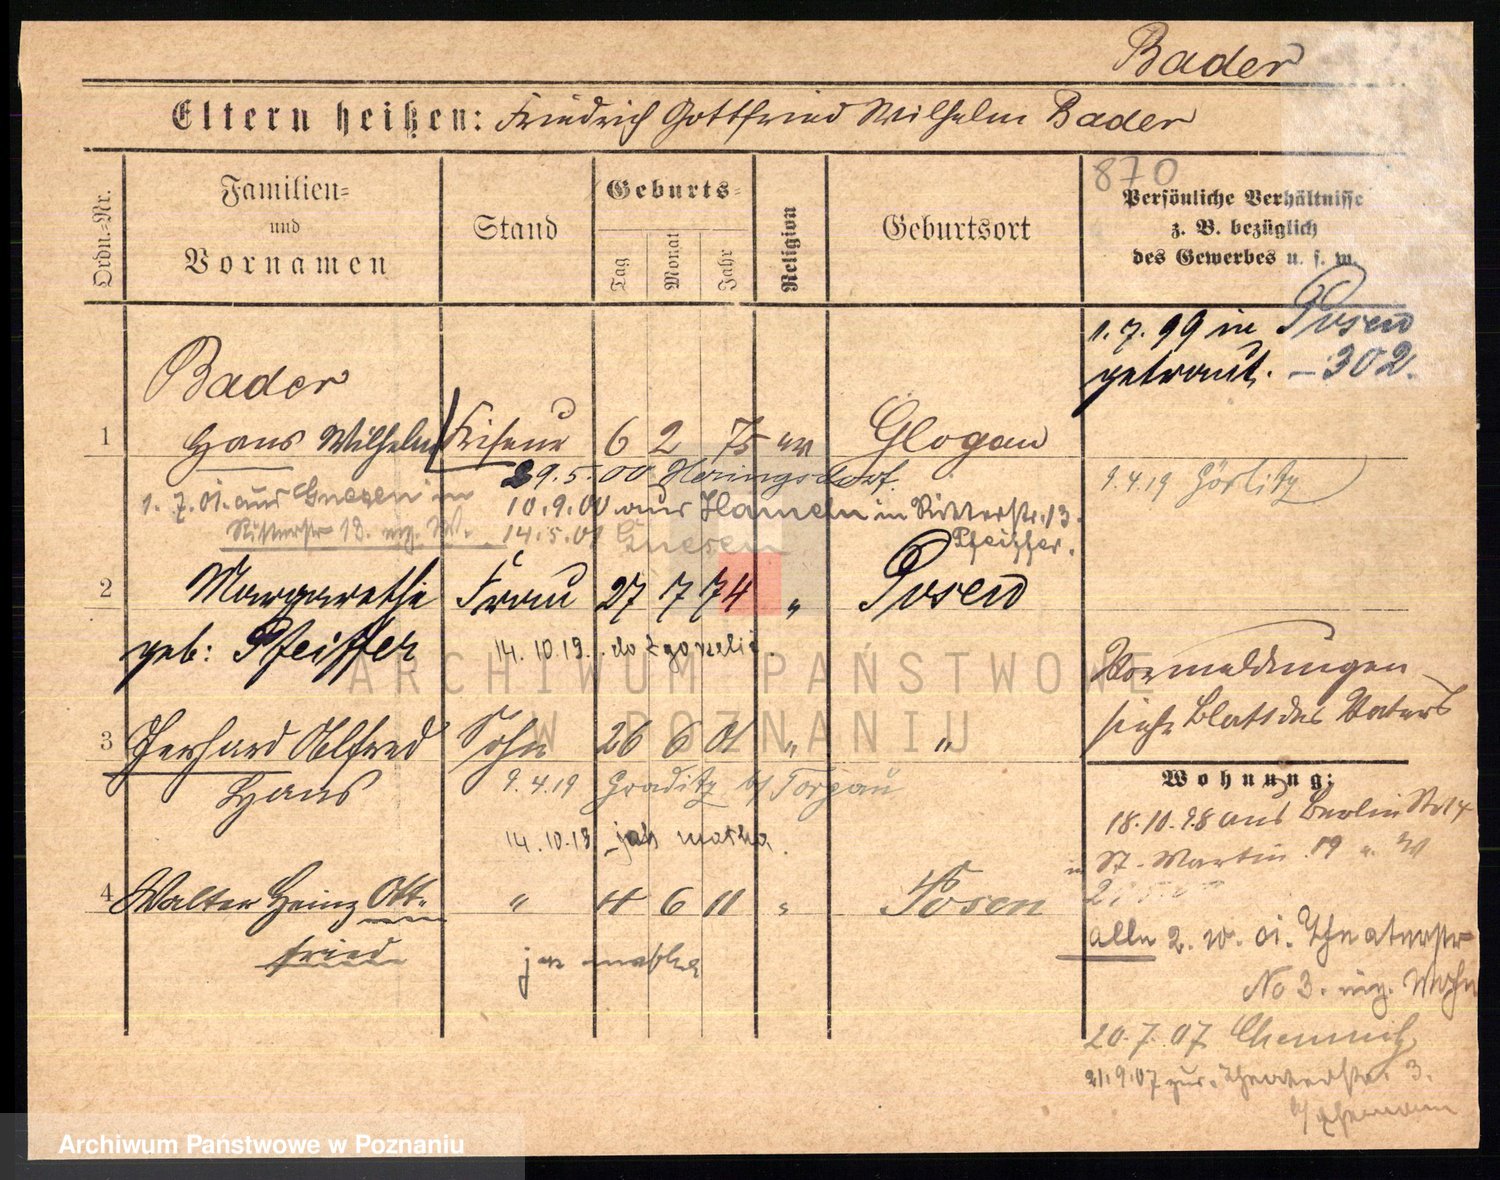 Bader
Eltern heißen: Friedrich Gottfried Wilhelm Bader
870
Ordn.-Nr.
Familien-
und
Vornamen
Stand
Geburts-
Tag
Monat
Jahr
Religion
Geburtsort
Persönliche Verhältnisse
z. B. bezüglich
des Gewerbes u. s. w.
1. 7. 99 in Posen
getraut. – 302.
Bader
1 Hans Wilhelm Friseur 6 2 75 ev Glogau
29.5.00 Heringsdorf.
9.4.19 Görlitz
1. 7. 01. aus Gnesen in
10.9.00 aus Hameln in Ritterstr. 13.
Ritterstr 13.
14.5.01 Gnesen
Pfeiffer.
2 Margarethe Frau 27 7 74 " Posen
geb: Pfeiffer
14.10.19. do Zgorzelic.
Vormeldungen
siehe Blatt des Vaters
3 Gerhard Alfred Sohn 26 6 01 " "
Hans
9.4.19 Graditz b/ Torgau
14.10.19 jak matka.
Wohnung:
18.10.98 aus Berlin
in St. Martin 19
4 Walter Heinz Ott- " 11 6 11 " Posen
fried
jak matka
alle 2. 10. 01. Theaterstr
No 3.
20.7.07 Chemnitz
21.9.07 zur. Theaterstr. 3.
ARCHIWUM PAŃSTWOWE
W POZNANIU
Archiwum Państwowe w Poznaniu